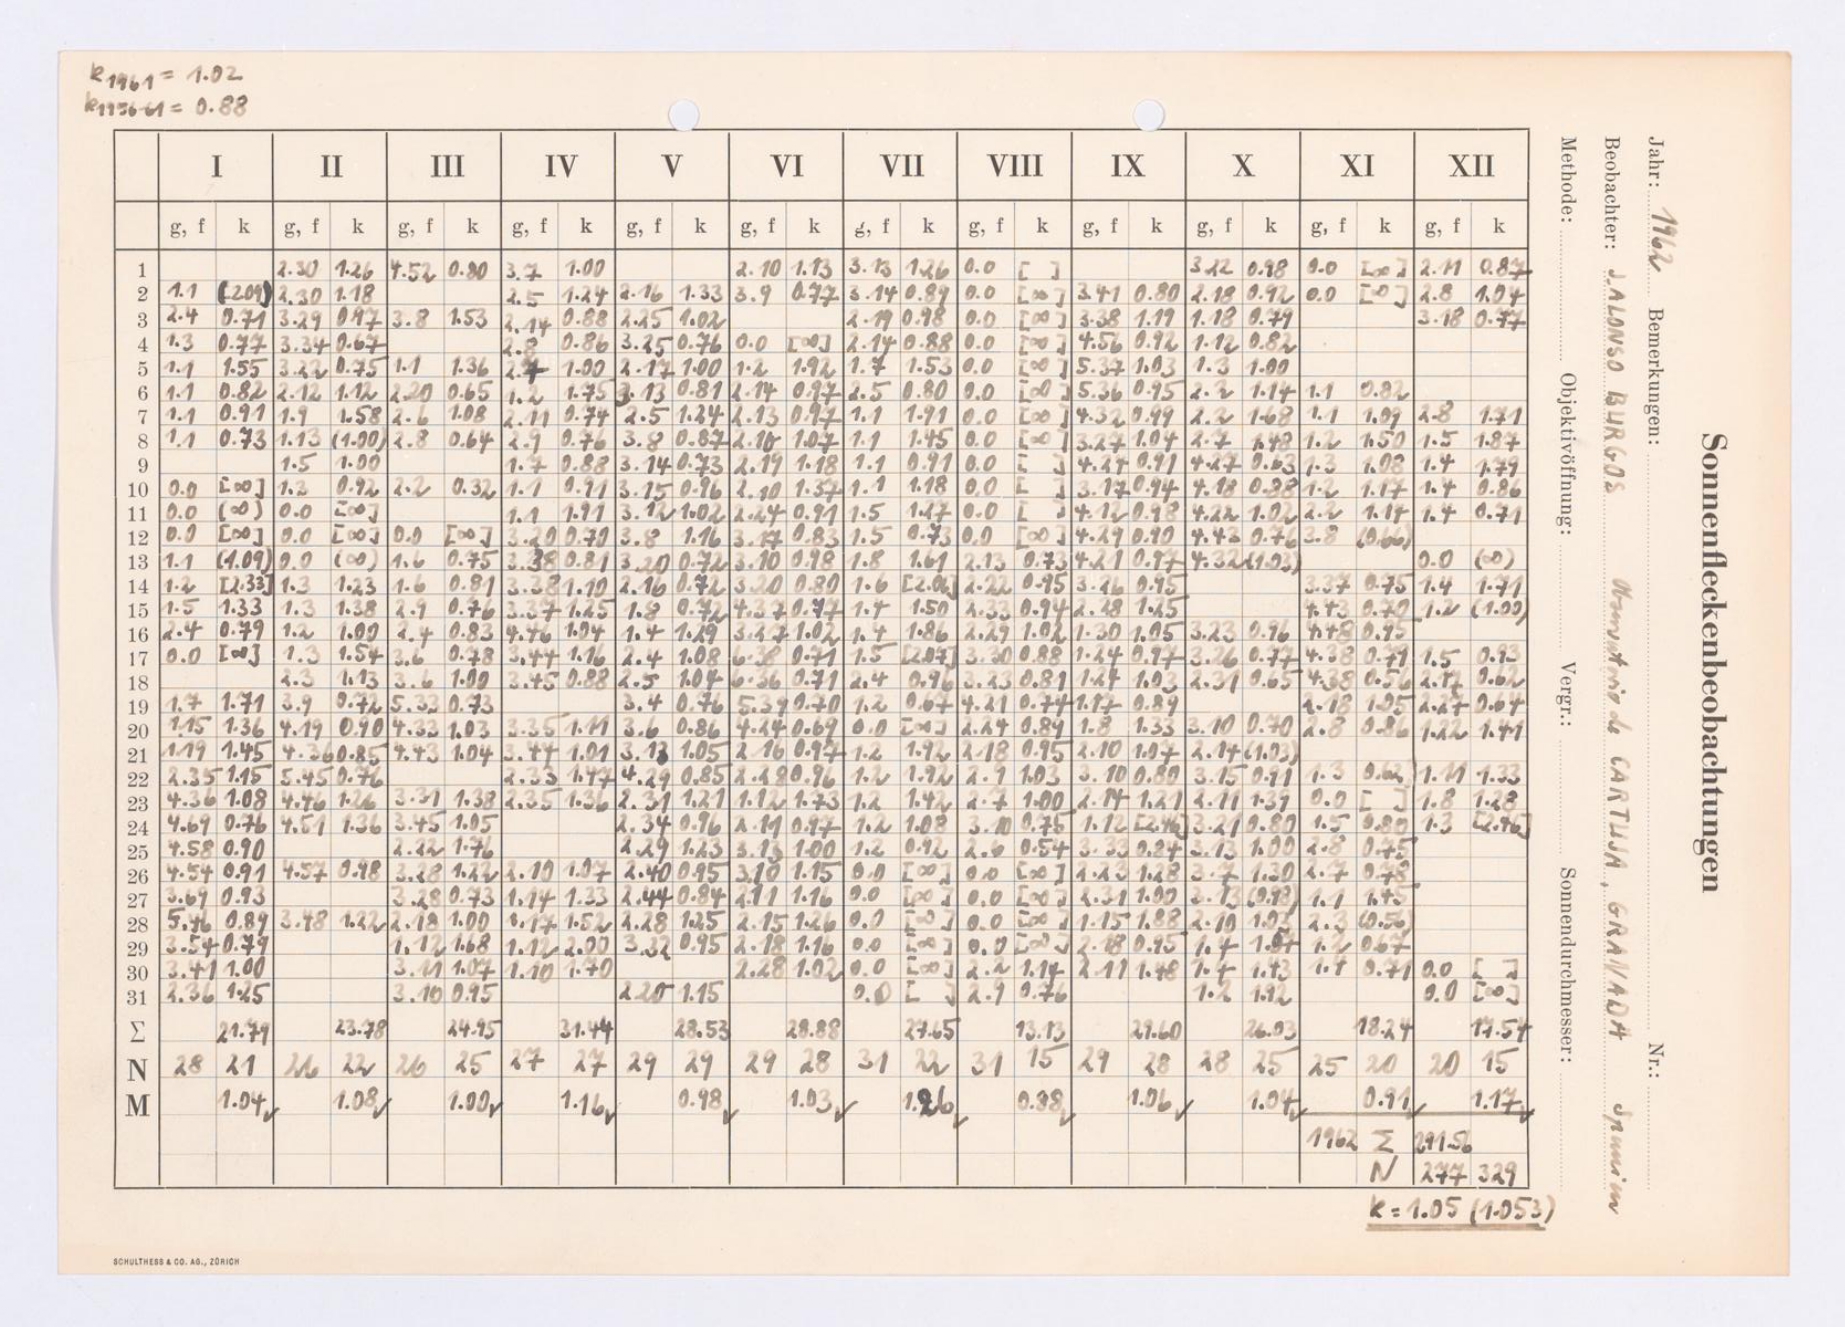 k1961 = 1.02
k1956-61 = 0.88
I II III IV V VI VII VIII IX X XI XII
g, f k g, f k g, f k g, f k g, f k g, f k g, f k g, f k g, f k g, f k g, f k g, f k
1 2.30 1.26 4.52 0.80 3.7 1.00 2.10 1.13 3.13 1.26 0.0 [ ] 3.22 0.98 0.0 [∞] 2.11 0.87
2 1.1 (2.09) 2.30 1.18 2.5 1.24 2.16 1.33 3.9 0.77 3.14 0.89 0.0 [∞] 3.41 0.80 2.18 0.92 0.0 [∞] 2.8 1.04
3 2.4 0.71 3.29 0.97 3.8 1.53 2.14 0.88 2.25 1.02 2.19 0.98 0.0 [∞] 3.38 1.19 1.18 0.79 3.18 0.77
4 1.3 0.77 3.34 0.67 2.8 0.86 3.25 0.76 0.0 [∞] 2.14 0.88 0.0 [∞] 4.56 0.92 1.12 0.82
5 1.1 1.55 3.22 0.75 1.1 1.36 2.7 1.00 2.17 1.00 1.2 1.92 1.7 1.53 0.0 [∞] 5.37 1.03 1.3 1.00
6 1.1 0.82 2.12 1.12 2.20 0.65 1.2 1.75 3.13 0.81 2.14 0.97 2.5 0.80 0.0 [∞] 5.36 0.95 2.2 1.14 1.1 0.82
7 1.1 0.91 1.9 1.58 2.6 1.08 2.11 0.74 2.5 1.24 2.13 0.97 1.1 1.91 0.0 [∞] 4.32 0.99 2.2 1.68 1.1 1.09 2.8 1.71
8 1.1 0.73 1.13 (1.00) 2.8 0.64 2.9 0.76 3.8 0.87 2.16 1.07 1.1 1.45 0.0 [∞] 3.27 1.04 2.7 1.48 1.2 1.50 1.5 1.87
9 1.5 1.00 1.7 0.88 3.14 0.73 2.19 1.18 1.1 0.91 0.0 [ ] 4.27 0.91 4.27 0.63 1.3 1.08 1.4 1.79
10 0.0 [∞] 1.2 0.92 2.2 0.32 1.1 0.91 3.15 0.96 2.10 1.37 1.1 1.18 0.0 [ ] 3.17 0.94 4.18 0.88 1.2 1.17 1.4 0.86
11 0.0 (∞) 0.0 [∞] 1.1 1.91 3.12 1.02 2.24 0.91 1.5 1.27 0.0 [ ] 4.12 0.98 4.22 1.02 2.2 1.14 1.4 0.71
12 0.0 [∞] 0.0 [∞] 0.0 [∞] 3.20 0.70 3.8 1.16 3.17 0.83 1.5 0.73 0.0 [∞] 4.29 0.90 4.43 0.76 3.8 (0.66)
13 1.1 (1.09) 0.0 (∞) 1.6 0.75 3.38 0.81 3.20 0.72 3.10 0.98 1.8 1.61 2.13 0.73 4.21 0.97 4.32 (1.03) 0.0 (∞)
14 1.2 [2.33] 1.3 1.23 1.6 0.81 3.38 1.10 2.16 0.72 3.20 0.80 1.6 [2.06] 2.22 0.95 3.26 0.95 3.37 0.75 1.4 1.71
15 1.5 1.33 1.3 1.38 2.9 0.76 3.37 1.25 1.8 0.72 4.37 0.77 1.4 1.50 2.33 0.94 2.28 1.25 4.43 0.70 1.2 (1.00)
16 2.4 0.79 1.2 1.00 2.4 0.83 4.46 1.04 1.4 1.29 3.27 1.02 1.4 1.86 2.29 1.02 1.30 1.05 3.23 0.96 4.48 0.95
17 0.0 [∞] 1.3 1.54 3.6 0.78 3.44 1.16 2.4 1.08 6.38 0.71 1.5 [2.07] 3.30 0.88 1.24 0.97 3.26 0.77 4.38 0.71 1.5 0.93
18 2.3 1.13 3.6 1.00 3.45 0.88 2.5 1.04 6.36 0.71 2.4 0.96 3.23 0.81 1.24 1.03 2.31 0.65 4.38 0.56 2.17 0.62
19 1.7 1.71 3.9 0.72 5.33 0.73 3.4 0.76 5.39 0.70 1.2 0.67 4.21 0.74 1.17 0.89 2.18 1.05 2.27 0.64
20 1.15 1.36 4.19 0.90 4.33 1.03 3.35 1.11 3.6 0.86 4.24 0.69 0.0 [∞] 2.24 0.89 1.8 1.33 3.10 0.70 2.8 0.86 1.22 1.41
21 1.19 1.45 4.36 0.85 4.43 1.04 3.44 1.01 3.13 1.05 2.16 0.97 1.2 1.92 2.18 0.95 2.10 1.07 2.14 (1.03)
22 2.35 1.15 5.45 0.76 2.33 1.47 4.29 0.85 2.28 0.96 1.2 1.92 2.9 1.03 3.10 0.80 3.15 0.91 1.3 0.62 1.11 1.33
23 4.36 1.08 4.46 1.26 3.31 1.38 2.35 1.36 2.31 1.21 1.12 1.73 1.2 1.42 2.7 1.00 2.14 1.21 2.11 1.39 0.0 [ ] 1.8 1.28
24 4.69 0.76 4.51 1.36 3.45 1.05 2.34 0.96 2.11 0.97 1.2 1.08 3.10 0.75 1.12 [2.46] 3.21 0.80 1.5 0.80 1.3 [2.46]
25 4.58 0.90 2.22 1.76 2.29 1.23 3.13 1.00 1.2 0.92 2.6 0.54 3.33 0.84 3.13 1.00 2.8 0.75
26 4.54 0.91 4.57 0.98 3.28 1.22 2.10 1.07 2.40 0.95 3.10 1.15 0.0 [∞] 0.0 [∞] 2.23 1.28 3.7 1.30 2.7 0.78
27 3.69 0.93 3.28 0.73 1.14 1.33 2.44 0.84 2.11 1.16 0.0 [∞] 0.0 [∞] 2.31 1.00 3.13 (0.98) 1.1 1.45
28 5.46 0.89 3.48 1.22 2.18 1.00 1.17 1.52 2.28 1.25 2.15 1.26 0.0 [∞] 0.0 [∞] 1.15 1.88 2.10 1.03 2.3 (0.56)
29 3.54 0.79 1.12 1.68 1.12 2.00 3.32 0.95 2.18 1.16 0.0 [∞] 0.0 [∞] 2.18 0.95 1.4 1.2 0.67
30 3.41 1.00 3.11 1.07 1.10 1.70 2.28 1.02 0.0 [∞] 2.2 1.14 2.11 1.48 1.4 1.43 1.4 0.71 0.0 [ ]
31 2.36 1.25 3.10 0.95 2.20 1.15 0.0 [ ] 2.9 0.76 1.2 1.92 0.0 [∞]
Σ 21.79 23.78 24.95 31.44 28.53 28.88 27.65 13.13 29.60 26.03 18.24 17.54
N 28 21 26 22 26 25 27 27 29 29 29 28 31 22 31 15 29 28 28 25 25 20 20 15
M 1.04✓ 1.08✓ 1.00✓ 1.16✓ 0.98✓ 1.03✓ 1.26✓ 0.88✓ 1.06✓ 1.04✓ 0.91✓ 1.17✓
1962 Σ 291.56
N 277 329
k = 1.05 (1.053)
SCHULTHESS & CO. AG., ZÜRICH
Sonnenfleckenbeobachtungen
Jahr: 1962 Bemerkungen: Nr.:
Beobachter: J. ALONSO BURGOS Observatorio de CARTUJA, GRANADA Spanien
Methode: Objektivöffnung: Vergr.: Sonnendurchmesser: